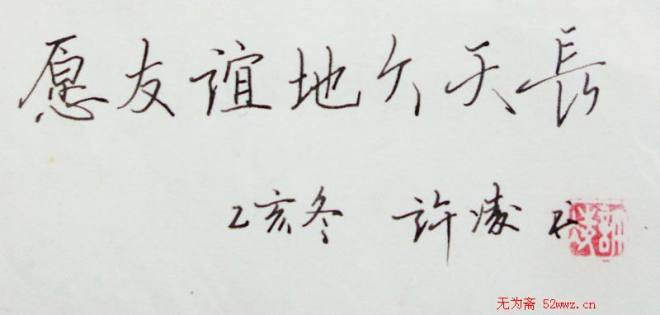 愿友谊地久天長
乙亥冬 许凌
无为斋 52wwz.cn